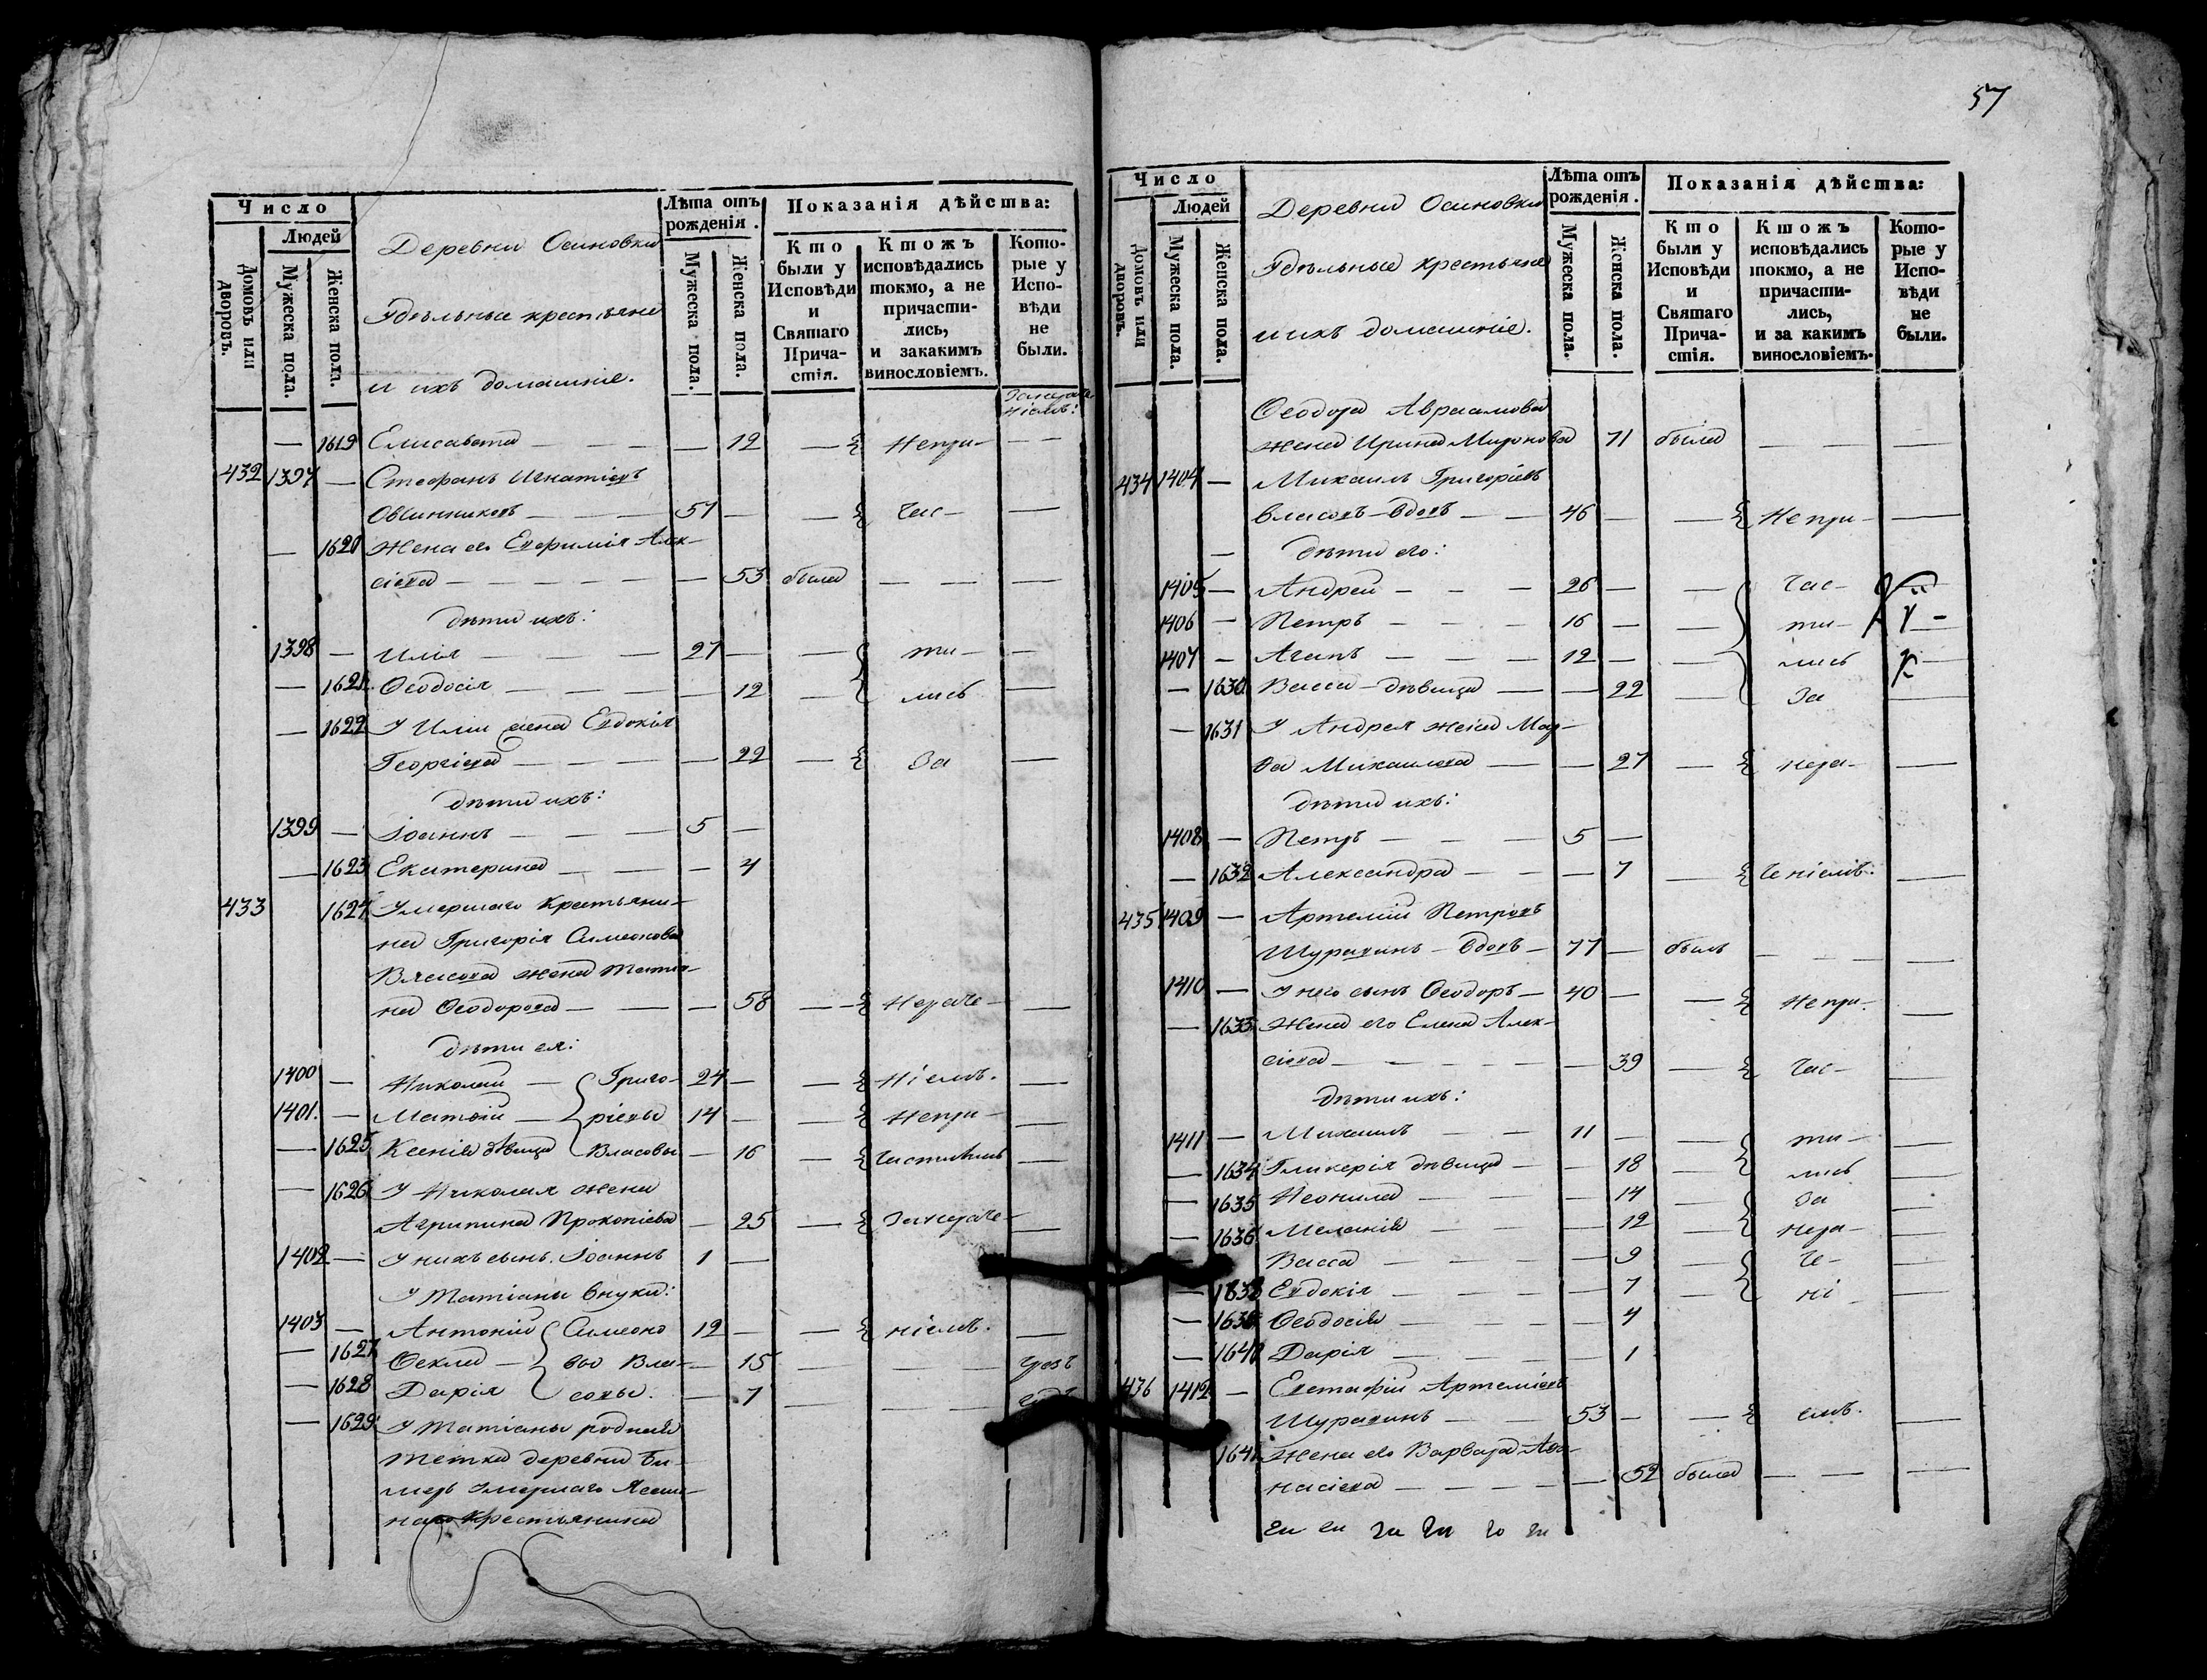 57
Число
Людей
Домовъ или дворовъ.
Мужеска пола.
Женска пола.
Деревни Осиновки
Удѣльные крестьяне
и ихъ домашніе.
Лѣта отъ рожденія.
Мужеска пола.
Женска пола.
Показанія дѣйства:
Кто были у Исповѣди и Святаго Причастія.
Ктожъ исповѣдались токмо, а не причастились, и закакимъ винословіемъ.
Которые у Исповѣди не были.
— 1619 Елисавета — — 12 — Непри- —
432 1397 — Стефанъ Игнатіевъ
Овчинниковъ — 51 — — час- —
— 1620 Жена его Евфимія Алек-
сіева — — 53 была — —
дѣти ихъ:
1398 — Илія — 27 — — ти- —
— 1621 Ѳеодосія — — 12 — лись —
— 1622 У Иліи жена Евдокія
Георгіева — — 22 — За —
дѣти ихъ:
1399 — Іоаннъ — 5 —
— 1623 Екатерина — — 4
433 1624 Умершаго крестьяни-
на Григорія Симеонова
Власова жена Татіа-
на Ѳеодорова — — 58 — Нераче- —
дѣти ея:
1400 — Николай — Григо- 24 — — ніемъ. —
1401. — Матѳій — рьевы 14 — — Непри- —
— 1625 Ксенія дѣвица Власовы — 16 — частились —
— 1626 У Николая жена
Агрипина Прокопіева — 25 — Занераче- —
1402 — У нихъ сынъ Іоаннъ 1 —
У Татіаны внуки:
1403 — Антоній Симеоно 12 — — ніемъ. —
— 1627 Ѳекла — вы Вла- — 15 — —
— 1628 Дарія совы. — 7 — —
— 1629 У Татіаны родная
тетка деревни
умершаго
крестьянина
Число
Людей
Домовъ или дворовъ.
Мужеска пола.
Женска пола.
Деревни Осиновки
Удѣльные крестьяне
и ихъ домашніе.
Лѣта отъ рожденія.
Мужеска пола.
Женска пола.
Показанія дѣйства:
Кто были у Исповѣди и Святаго Причастія.
Ктожъ исповѣдались токмо, а не причастились, и за какимъ винословіемъ.
Которые у Исповѣди не были.
Ѳеодора Авраамова
жена Ирина Миронова 71 была — —
434 1404 — Михаилъ Григоріевъ
Власовъ — вдовъ — 46 — — Непри- —
— дѣти его:
1405 — Андрей — 26 — — час-
1406 — Петръ — 16 — — ти-
1407 — Агапъ — 12 — — лись
— 1630 Васса — дѣвица — — 22 — За —
— 1631 У Андрея жена Мар-
ѳа Михаилова — — 27 — нера- —
дѣти ихъ:
1408 — Петръ — 5 —
— 1632 Александра — — 7 — ченіемъ. —
435 1409 — Артемій Петровъ
Шурагинъ — вдовъ — 77 — былъ — —
1410 — У него сынъ Ѳеодоръ — 40 — — Непри-
— 1633 Жена его Елена Алек-
сіева — — 39 — час- —
дѣти ихъ:
1411 — Михаилъ — 11 — — ти- —
— 1634 Гликерія дѣвица — — 18 — лись —
— 1635 Неонила — — 14 За —
— 1636 Меланія — — 12 — нера- —
Васса — — 9 — че- —
— 1638 Евдокія — — 7 — ні —
— 1639 Ѳеодосія — — 4
— 1640 Дарія — — 1
436 1412 — Евстафій Артеміевъ
Шурагинъ — 53 — — емъ. —
1641 Жена его Варвара Аѳа-
насіева — — 52 была — —